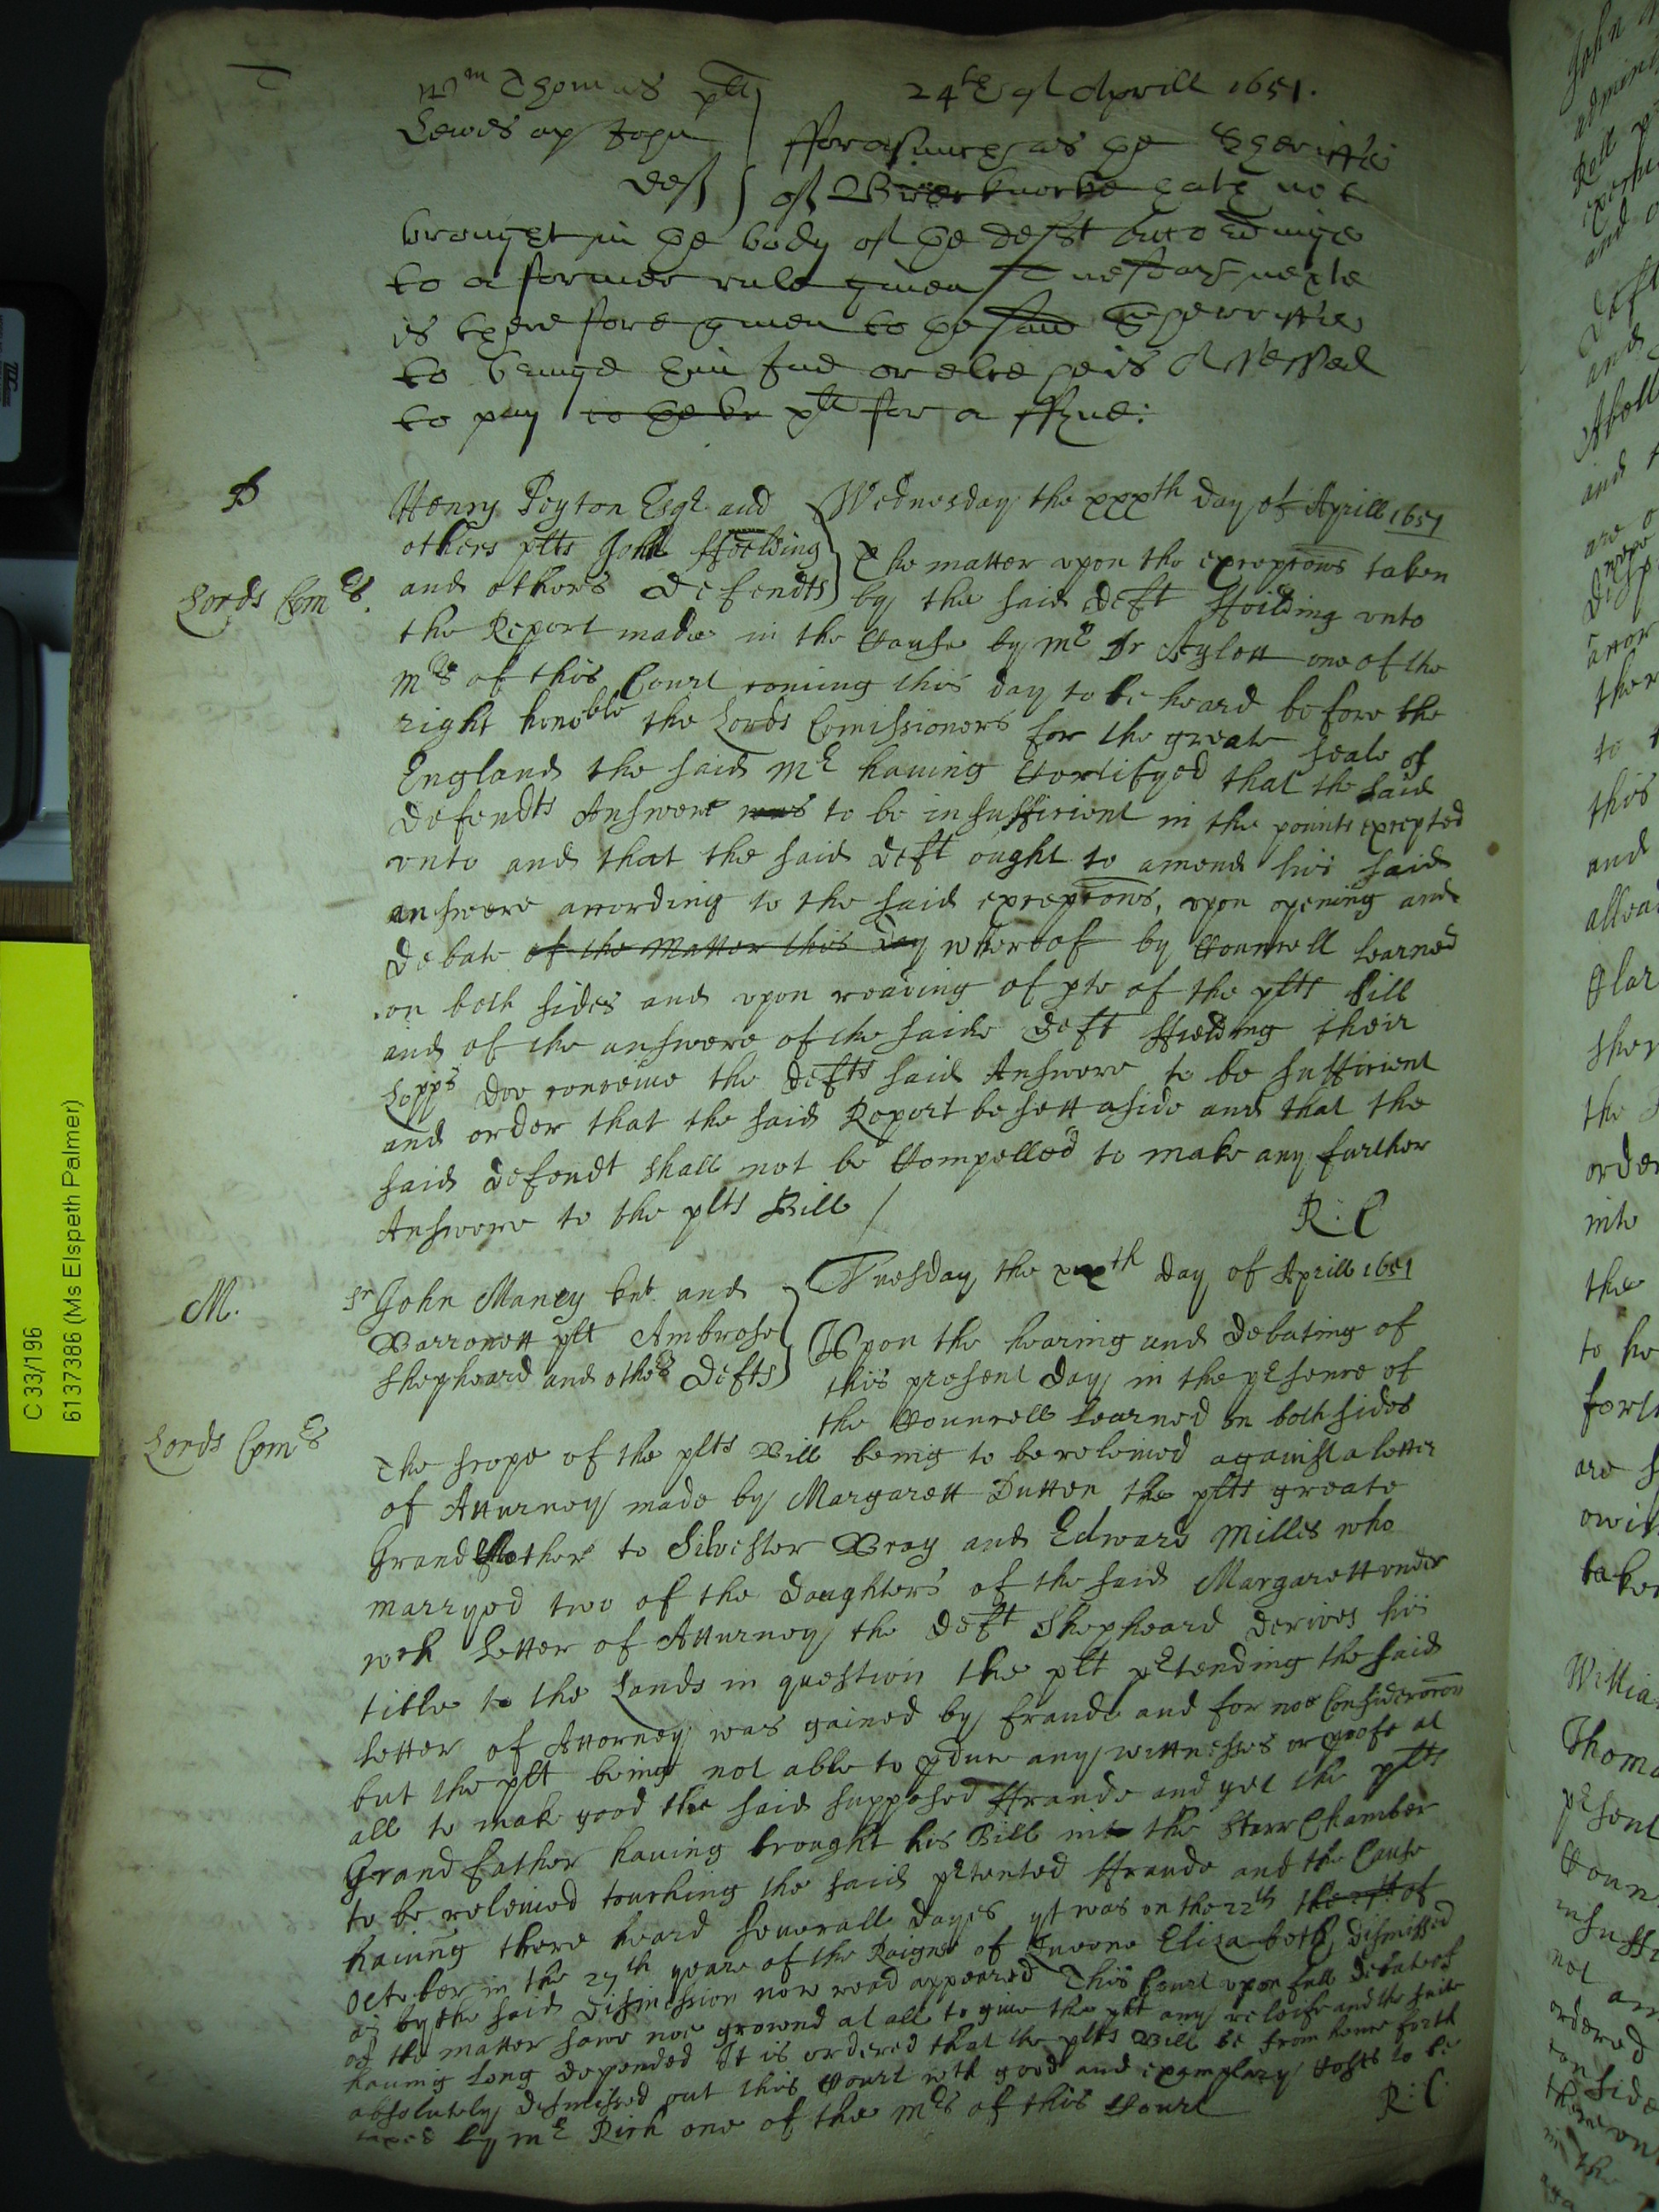 T
Wm Thomas plt 24th of Aprill 1651.
Lewes ap John fforasmuch as the Sheriffe
deft of hath not
brought in the body of the deft
to a former rule given Tuesday nexte
is therefore given to the said Sherriffe
to bringe him Ind or else he is Assessed
to pay to the plt for a ffyne:
P
Henry Peyton Esqr and Wednesday the xxxth day of Aprill 1651
others plts John ffeilding The matter upon the excepcons taken
Lords Comrs. and others Defendts by the said deft ffeilding vnto
the Report made in the Cause by Mr Dr Aylett one of the
Mrs of this Court coming this day to be heard before the
right honoble the Lords Comissioners for the greate seale of
England the said Mr hauing Certifyed that the said
Defendts Answere was to be insufficient in the points excepted
vnto and that the said deft ought to amend his said
answere according to the said excepcons, vpon opening and
Debate of the Matter this Day whereof by Councell learned
on both sides and vpon reading of pte of the plts Bill
and of the answere of the saide Deft ffielding their
Lopps doe conceiue the Defts said Answere to be sufficient
and order that the said Report be sett aside and that the
said Defendt shall not be Compelled to make any further
Answere to the plts Bill / R: C
M. Sr John Maney knt and Tuesday the xxixth day of Aprill 1651
Barronett plt Ambrose Vpon the hearing and Debating of
Shepheard and others Defts this present Day in the presence of
the Councell learned on both sides
Lords Comrs The scope of the plts Bill being to be releiued against a letter
of Atturney made by Margarett Dutton the plts greate
GrandMother to Silvester Bray and Edward Milles who
marryed two of the Daughters of the said Margarett vnder
wch Letter of Atturney the Deft Shepheard derives his
title to the Lands in question the plt pretending the said
Letter of Attorney was gained by fraude and for noe Consideracon
but the plt being not able to pduce any wittnesses or proofe at
all to make good the said supposed ffraude and yet the plts
Grandfather hauing brought his Bill into the Starr Chamber
to be releiued touching the said pretented ffraude and the Cause
haiuing there heard seuerall dayes yt was on the 22th of
October in the 27th yeare of the Raigne of Queene Elizabeth Dismissed
as by the said Dismission now read appeared This Court vpon full debate of
the matter sawe noe grownd at all to giue the plt any releife and the suite
hauing long depended It is ordered that the plts Bill be from henceforth
absolutely Dismissed out this Court wth good and exemplary Costs to be
taxed by Mr Rich one of the Mrs of this Court R: C:
C 33/196
6137386 (Ms Elspeth Palmer)